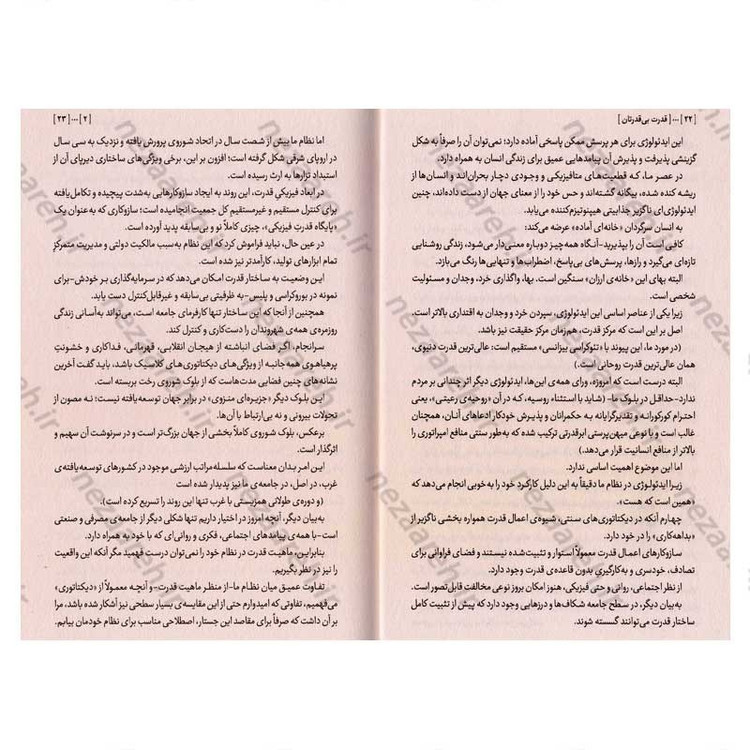 [ ۲۲ ] ... [ قدرت بی‌قدرتان ]
این ایدئولوژی برای هر پرسش ممکن پاسخی آماده دارد؛ نمی‌توان آن را صرفاً به شکل
گزینشی پذیرفت و پذیرش آن پیامدهایی عمیق برای زندگی انسان به همراه دارد.
در عصر ما، که قطعیت‌های متافیزیکی و وجودی دچار بحران‌اند و انسان‌ها از
ریشه کنده شده، بیگانه گشته‌اند و حس خود را از معنای جهان از دست داده‌اند، چنین
ایدئولوژی‌ای ناگزیر جذابیتی هیپنوتیزم‌کننده می‌یابد.
به انسان سرگردان «خانه‌ای آماده» عرضه می‌کند:
کافی است آن را بپذیرید-آنگاه همه‌چیز دوباره معنی‌دار می‌شود، زندگی روشنایی
تازه‌ای می‌گیرد و رازها، پرسش‌های بی‌پاسخ، اضطراب‌ها و تنهایی‌ها رنگ می‌بازد.
البته بهای این «خانه‌ی ارزان» سنگین است. بها، واگذاری خرد، وجدان و مسئولیت
شخصی است.
زیرا یکی از عناصر اساسی این ایدئولوژی، سپردن خرد و وجدان به اقتداری بالاتر است.
اصل بر این است که مرکز قدرت، هم‌زمان مرکز حقیقت نیز باشد.
(در مورد ما، این پیوند با «تئوکراسی بیزانسی» مستقیم است: عالی‌ترین قدرت دنیوی،
همان عالی‌ترین قدرت روحانی است.)
البته درست است که امروزه، ورای همه‌ی این‌ها، ایدئولوژی دیگر اثر چندانی بر مردم
ندارد-حداقل در بلوک ما- (شاید با استثناء روسیه، که در آن «روحیه‌ی رعیتی»، یعنی
احترام کورکورانه و تقدیرگرایانه به حکمرانان و پذیرش خودکار ادعاهای آنان، همچنان
غالب است و با نوعی میهن‌پرستی ابرقدرتی ترکیب شده که به‌طور سنتی منافع امپراتوری را
بالاتر از منافع انسانیت قرار می‌دهد.)
اما این موضوع اهمیت اساسی ندارد.
زیرا ایدئولوژی در نظام ما دقیقاً به این دلیل کارکرد خود را به خوبی انجام می‌دهد که
«همین است که هست».
چهارم آنکه در دیکتاتوری‌های سنتی، شیوه‌ی اعمال قدرت همواره بخشی ناگزیر از
«بداهه‌کاری» را در خود دارد.
سازوکارهای اعمال قدرت معمولاً استوار و تثبیت‌شده نیستند و فضای فراوانی برای
تصادف، خودسری و به‌کارگیری بدون قاعده‌ی قدرت وجود دارد.
از نظر اجتماعی، روانی و حتی فیزیکی، هنوز امکان بروز نوعی مخالفت قابل‌تصور است.
به‌بیان دیگر، در سطح جامعه شکاف‌ها و درزهایی وجود دارد که پیش از تثبیت کامل
ساختار قدرت می‌توانند گسسته شوند.
[ ۲ ] ... [ ۲۳ ]
اما نظام ما بیش از شصت سال در اتحاد شوروی پرورش یافته و نزدیک به سی سال
در اروپای شرقی شکل گرفته است؛ افزون بر این، برخی ویژگی‌های ساختاری دیرپای آن از
استبداد تزارها به ارث رسیده است.
در ابعاد فیزیکی قدرت، این روند به ایجاد سازوکارهایی به‌شدت پیچیده و تکامل‌یافته
برای کنترل مستقیم و غیرمستقیم کل جمعیت انجامیده است؛ سازوکاری که به‌عنوان یک
«پایگاه قدرت فیزیکی»، چیزی کاملاً نو و بی‌سابقه پدید آورده است.
در عین حال، نباید فراموش کرد که این نظام به‌سبب مالکیت دولتی و مدیریت متمرکز
تمام ابزارهای تولید، کارآمدتر نیز شده است.
این وضعیت به ساختار قدرت امکان می‌دهد که در سرمایه‌گذاری بر خودش-برای
نمونه در بوروکراسی و پلیس-به ظرفیتی بی‌سابقه و غیرقابل‌کنترل دست یابد.
همچنین از آنجا که این ساختار تنها کارفرمای جامعه است، می‌تواند به‌آسانی زندگی
روزمره‌ی همه‌ی شهروندان را دست‌کاری و کنترل کند.
سرانجام، اگر فضای انباشته از هیجان انقلابی، قهرمانی، فداکاری و خشونتِ
پرهیاهوی همه‌جانبه از ویژگی‌های دیکتاتوری‌های کلاسیک باشد، باید گفت آخرین
نشانه‌های چنین فضایی مدت‌هاست که از بلوک شوروی رخت بربسته است.
این بلوک دیگر «جزیره‌ای منزوی» در برابر جهان توسعه‌یافته نیست؛ نه مصون از
تحولات بیرونی و نه بی‌ارتباط با آن‌ها.
برعکس، بلوک شوروی کاملاً بخشی از جهان بزرگ‌تر است و در سرنوشت آن سهیم و
اثرگذار است.
این امر بدان معناست که سلسله‌مراتب ارزشی موجود در کشورهای توسعه‌یافته‌ی
غرب، در اصل، در جامعه‌ی ما نیز پدیدار شده است
(و دوره‌ی طولانی همزیستی با غرب تنها این روند را تسریع کرده است).
به‌بیان دیگر، آنچه امروز در اختیار داریم تنها شکلی دیگر از جامعه‌ی مصرفی و صنعتی
است-با همه‌ی پیامدهای اجتماعی، فکری و روانی‌ای که با خود به همراه دارد.
بنابراین، ماهیت قدرت در نظام خود را نمی‌توان درست فهمید مگر آنکه این واقعیت
را نیز در نظر بگیریم.
تفاوت عمیق میان نظام ما-از منظر ماهیت قدرت-و آنچه معمولاً از «دیکتاتوری»
می‌فهمیم، تفاوتی که امیدوارم حتی از این مقایسه‌ی بسیار سطحی نیز آشکار شده باشد، مرا
بر آن داشت که صرفاً برای مقاصد این جستار، اصطلاحی مناسب برای نظام خودمان بیابم.
nezaareh.ir